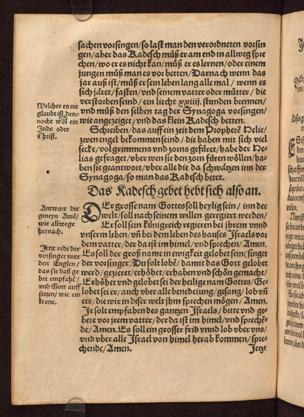 sachen vorsingen/so last man den verordneten vorsin
gen/aber das Kadesch müß er am end in allweg spre
chen/wo er es nit kan/müß er es lernen/oder einem
jungen müß man es vor betten/Darnach wenn das
jar auß ist/müß er sein leben lang alle mal/wenn es
sich järet/fasten/vnd seinem vatter oder mütter/die
verstorben seind/ein liecht xxiiij. stunden brennen/
vnd müß den selben tag der Synagoga vorsingen/
wie angezeiget/vnd das klein Kadesch betten.
Welcher es nit
glaubt ist den-
nocht wol ein
Jude oder
Christ.
Schreiben/das auff ein zeit dem Prophetē Helie/
zwen engel bekommen seind/die haben mit sich
secke/vol grimmens vnd zorns gefürt/habe der He-
lias gefraget/vber wen sie den zorn füren wöllen/ha-
ben sie geantwort/vber alle die da schwätzen inn der
Synagoga/so man das Kadesch betet.
Das Kadesch gebet hebt sich also an.
Antwort die
gmeyn Amē/
wie allwege
hernach.
DEr grosse nam Gottes soll heylig sein/im der
welt/soll nach seinem willen geregiert werden/
Er soll sein Künigreich regieren bey jrem vnnd
vnserm leben/vñ bei dem leben des hauses Israels vor
dem vatter/der da ist im himel/vnd sprechen/Amen.
Jetz redt der
vorsinger mit
den Englen/
das sie daß ge
bet empfahē/
vnd Gott auff
setzen/wie ein
krone.
Es soll der groß name in ewigkeit gelobet sein/singet
der vorsinger/Du solt lobē/damit das Gott gelobet
werd/gezieret/erhöhet/erhaben vnd schön gemacht/
Erhöhet vnd gelobet sei der heilige nam Gottes/Ge-
lobet sei er/auch vber alle benedeiung/gsang/lob vñ
eere/die wir in diser welt jhm sprechen mögen/Amen.
Ir solt empfahen des gantzen Israels/bitte vnd ge-
bete vor dem vatter/der da ist im himel/vnd spreche-
de/Amen. Es soll ein grosser frid vnnd lob vber vns/
vnd vber alle Israel von himel herab kommen/spre-
chende/Amen.
Jetz